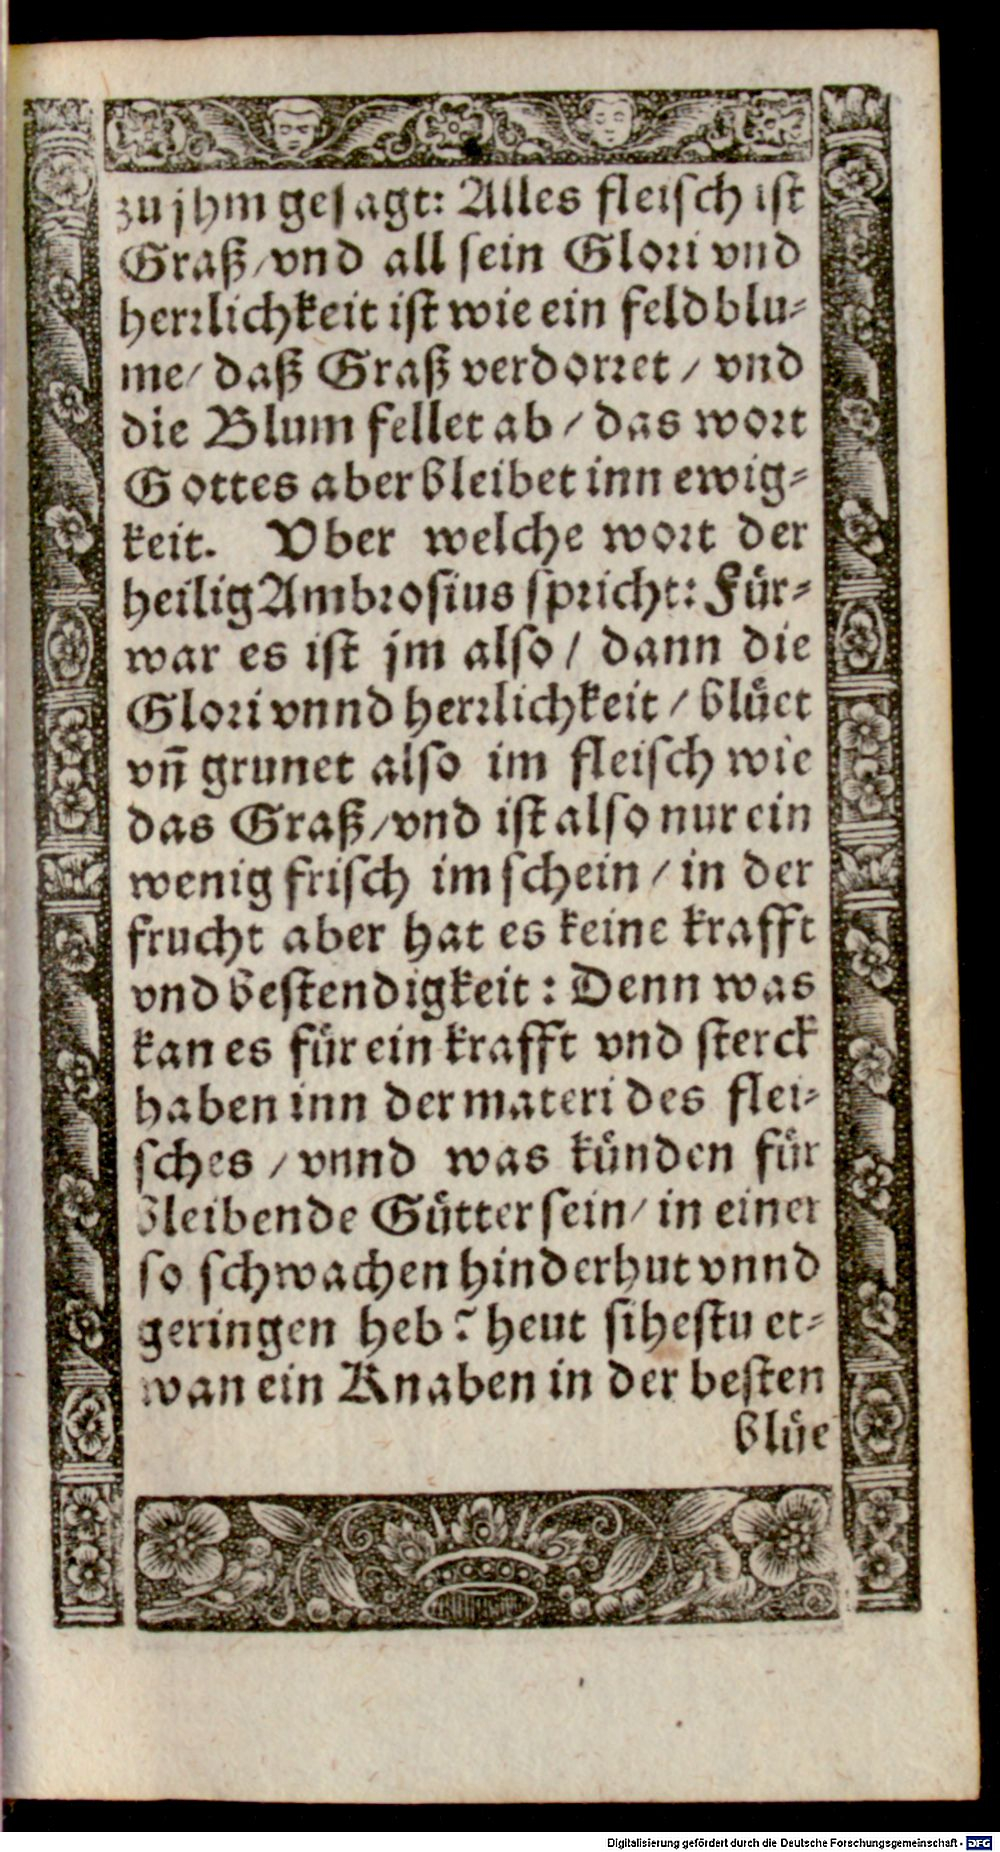 zu jhm gesagt: Alles fleisch ist
Graß/vnd all sein Glori vnd
herrlichkeit ist wie ein feldblu-
me/ daß Graß verdorret / vnd
die Blum fellet ab / das wort
Gottes aber bleibet inn ewig-
keit. Vber welche wort der
heilig Ambrosius spricht: Fuͤr-
war es ist jm also / dann die
Glori vnnd herrlichkeit / bluͤet
vñ grunet also im fleisch wie
das Graß/vnd ist also nur ein
wenig frisch im schein / in der
frucht aber hat es keine krafft
vnd bestendigkeit: Denn was
kan es fuͤr ein krafft vnd sterck
haben inn der materi des flei-
sches / vnnd was kuͤnden fuͤr
bleibende Guͤtter sein/ in einer
so schwachen hinderhut vnnd
geringen heb? heut sihestu et-
wan ein Knaben in der besten
bluͤe
Digitalisierung gefördert durch die Deutsche Forschungsgemeinschaft - DFG